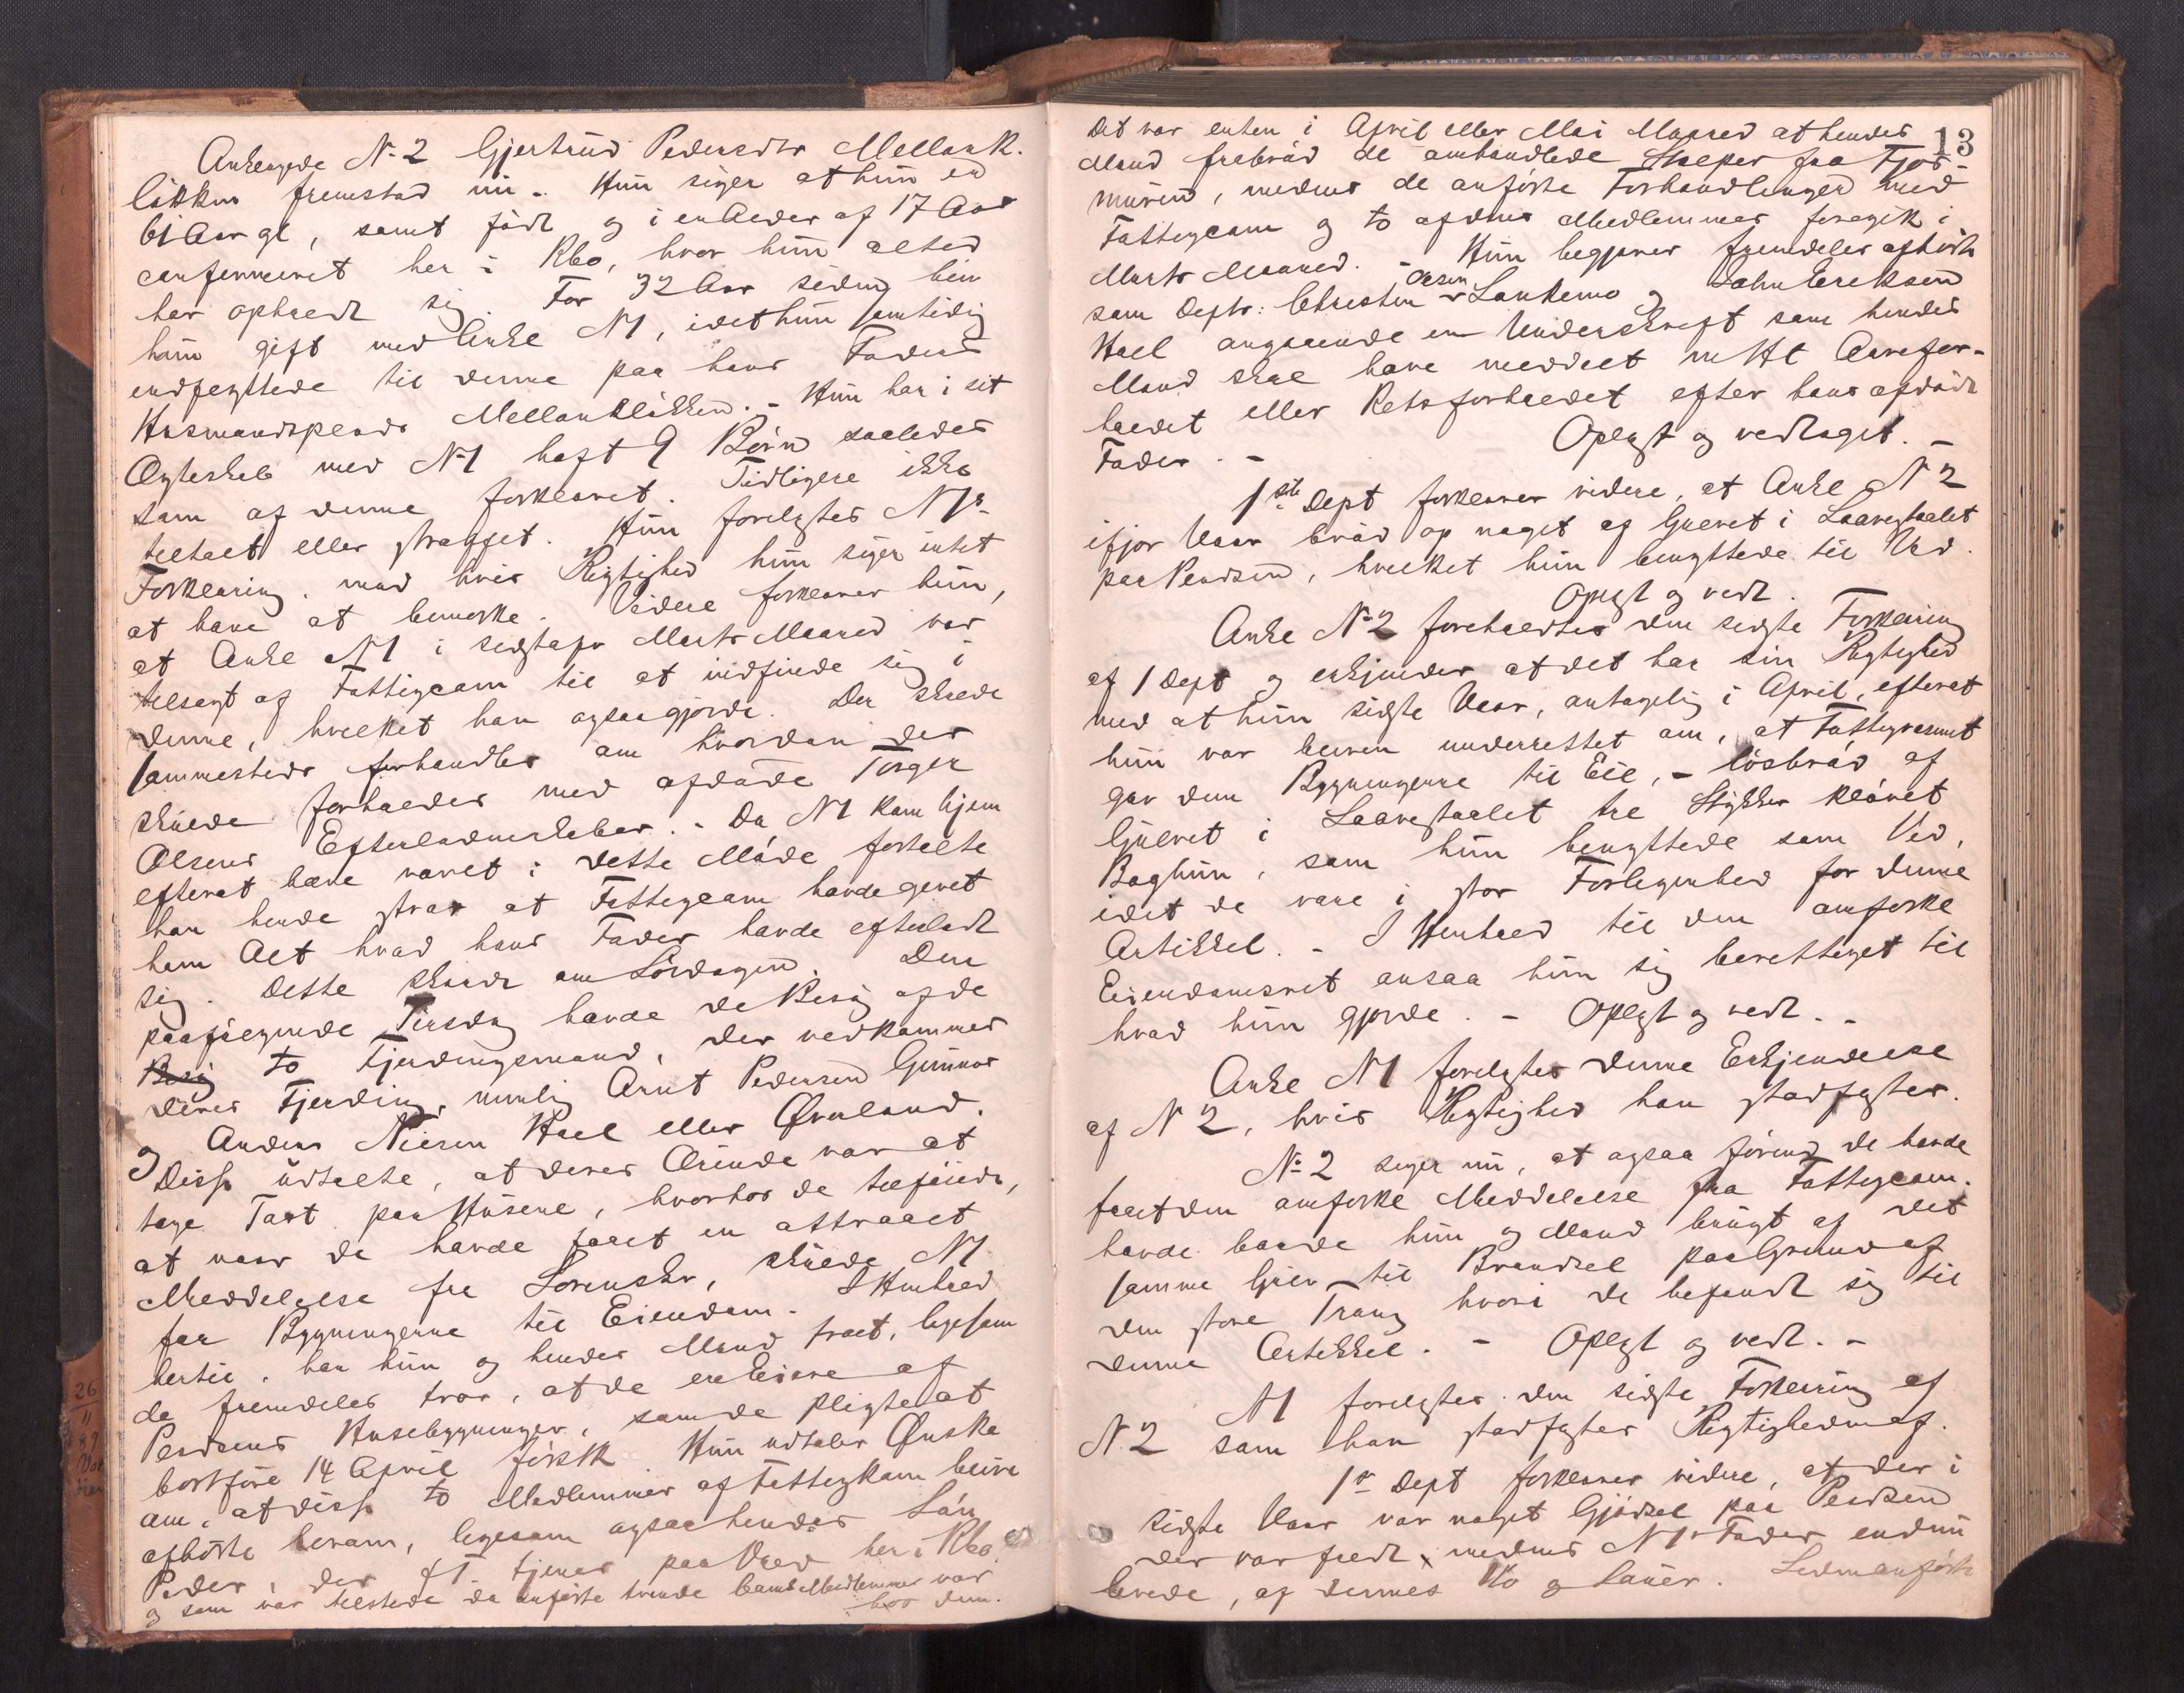 Anklagede N. 2 Gjertrud Pedersdtr Mellank.
løkken fremstod nu. Hun siger at hun er
61 Aar gl, samt født og i en Alder af 17 Aar
confirmeret her i Rbo, hvor hun altid
har opholdt sig. For 32 Aar siden blev
hun gift med Ankl N1, idet hun samtidig
indflyttede til denne paa hans Faders
Husmandsplads Mellankløkken. - Hun har i sit
Ægteskab med N1 havt 9 Børn saaledes
som af denne forklaret. Tidligere ikke
tiltalt eller straffet. Hun forelgtes N1s
Forklaring, mod hvis Rigtighed hun siger intet
at have at bemærke. Videre forklarer hun,
at Ankl N1 i sidstafv Marts Maaned var
tilsagt af Fattigcom til at indfinde sig i
denne, hvilket han ogsaa gjorde. Der skede
sammesteds forhandler om hvordan der
skulde forholdes med afdøde Torger
Olsens Efterladenskaber. - Da N1 kom hjem
efterat have været i dette Møde fortalte
han hende strax at Fattigcom havde givet
ham Alt hvad hans Fader havde efterladt
sig. Dette skede om Lørdagen. Den
paafølgende Tirsdag havde de Besøg af de
Besøg to Fjerdingsmænd, der vedkommer
deres Fjerding, nemlig Arnt Pedersen Gunnar
og Anders Nilsen Hoel eller Øveland.
Disse udtalte, at deres Ærinde var at
tage Taxt paa Husene, hvorhos de tilføiede,
at naar de havde faaet en attraaet
Meddelelse fra Lorenskr, skulde N1
faa Bygningerne til Eiendom. I Henhold
hertil, har hun og hendes Mand troet, ligesom
de fremdeles tror, at de ere Eiere af
Pladsens Husebygninger, som de pligte at
bortføre 14 April førstk. Hun udtaler Ønske
om, at disse to Medlemmer af Fattigkom blive
afhørte herom, ligesom ogsaa hendes Søn
Peder, der f T tjener paa Vold her i Rbo.
og som var tilstede da anførte tvende Com Medlemmer var
hos dem.
13
Det var enten i April eller Mai Maaned at hendes
Mand frabrød de omhandlede Stolper fra Fjøs-
muren, medens de anførte Forhandlinger med
Fattigcom og to af dens Medlemmer foregik i
Marts Maaned. - Hun begjærer fremdeles afhørt
som Deptr: Christen Olsen Lankemo og John Eriksen
Hoel angaaende en Underskrift som hendes
Mand skal have meddelt m Ht Arvefor-
holdet eller Retsforholdet efter hans afdøde
Fader. - Oplæst og vedtaget. -
1ste Dept forklarer videre, at Ankl N 2
ifjor Vaar brød op noget af Gulvet i Laavestaalet
paa Pladsen, hvilket hun benyttede til Ved.
Oplæst og vedt.
Ankl N 2 foreholdtes den sidste Forklaring
af 1 Dept og erkjender at det har sin Rigtighed
med at hun sidste Vaar, antagelig i April, efterat
hun var bleven underrettet om, at Fattigvæsenet
gav dem Bygningerne til Eie, - løsbrød af
Gulvet i Laavestaalet tre Stykker kløvet
Baghun, som hun benyttede som Ved,
idet de vare i stor Forlegenhed for denne
Artikkel. - I Henhold til den omforkl
Eiendomsret ansaa hun sig berettiget til
hvad hun gjorde. - Oplgt og vedt. -
Ankl N1 forelgtes denne Erkjendelse
af N 2, hvis Rigtighed han stadfæster.
N: 2 siger nu, at ogsaa førend de havde
faaet den omforkl Meddelelse fra Fattigcom.
havde baade hun og Mand brugt af det
samme Gulv til Brændsel paa Grund af
den store Trang hvori de befandt sig til
denne Artikkel. - Oplgt og vedt. -
N1 forelgtes den sidste Forklaring af
N 2 som han stadfæster Rigtigheden af.
1ste Dept forklarer videre, at der i
sidste Vaar var noget Gjødsel paa Pladsen
der var fredt, medens N1s Fader endnu
levede, af dennes Ko og Sauer.